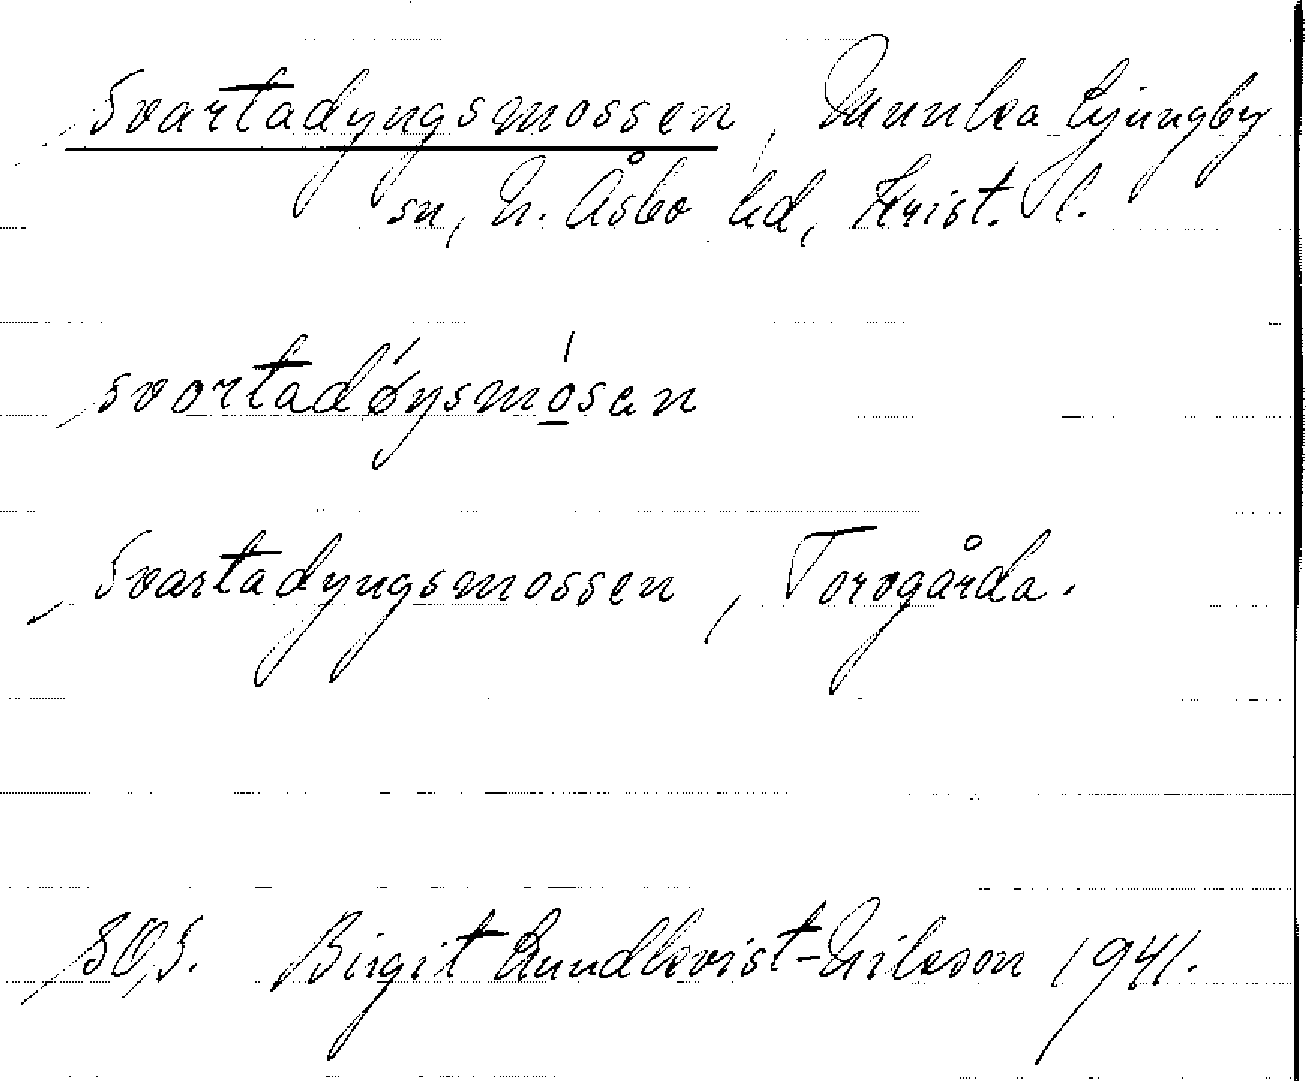 Svartadyngsmossen, Munka Ljungby
sn, N. Åsbo hd, Krist. l.
svortadøysmósen
Svartadyngsmossen, Torvgårda.
SOS. Birgit Lundkvist-Nilsson 1941.